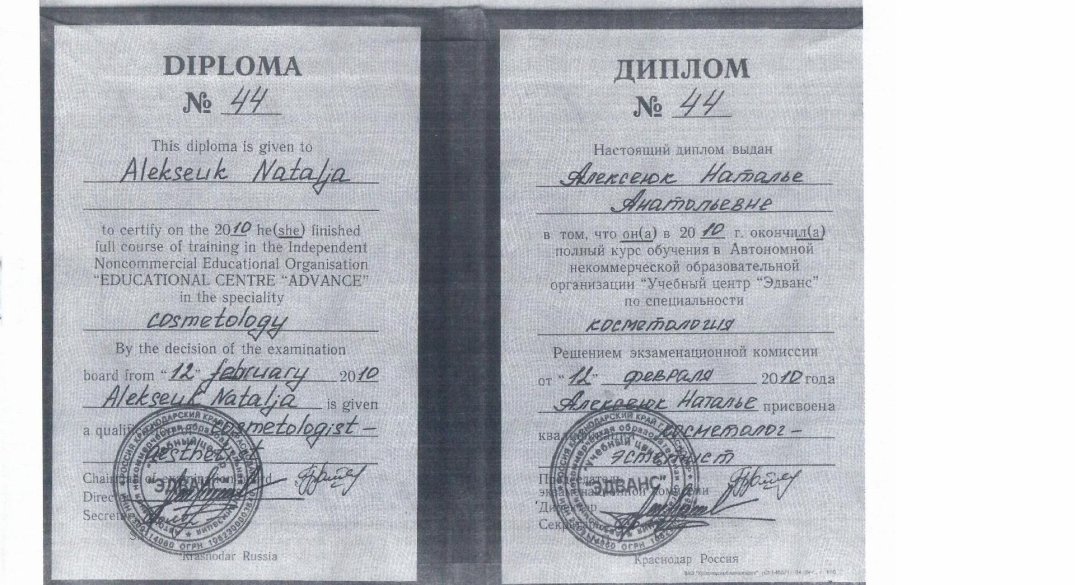 DIPLOMA
№ 44
This diploma is given to
Alekseuk Natalja
to certify on the 2010 he(she) finished
full course of training in the Independent
Noncommercial Educational Organisation
“EDUCATIONAL CENTRE “ADVANCE”
in the speciality
cosmetology
By the decision of the examination
board from “12” february 2010
Alekseuk Natalja is given
a cosmetologist –
esthetist
Secre
"ЭДВАНС"
Krasnodar Russia
ДИПЛОМ
№ 44
Настоящий диплом выдан
Алексеюк Наталье
Анатольевне
в том, что он(а) в 20 10 г. окончил(а)
полный курс обучения в Автономной
некоммерческой образовательной
организации “Учебный центр “Эдванс”
по специальности
косметология
Решением экзаменационной комиссии
от “12” февраля 2010 года
Алексеюк Наталье присвоена
косметолог –
эстетист
экзаменационной комиссии
Директор
"Учебный центр
"ЭДВАНС"
Краснодар Россия